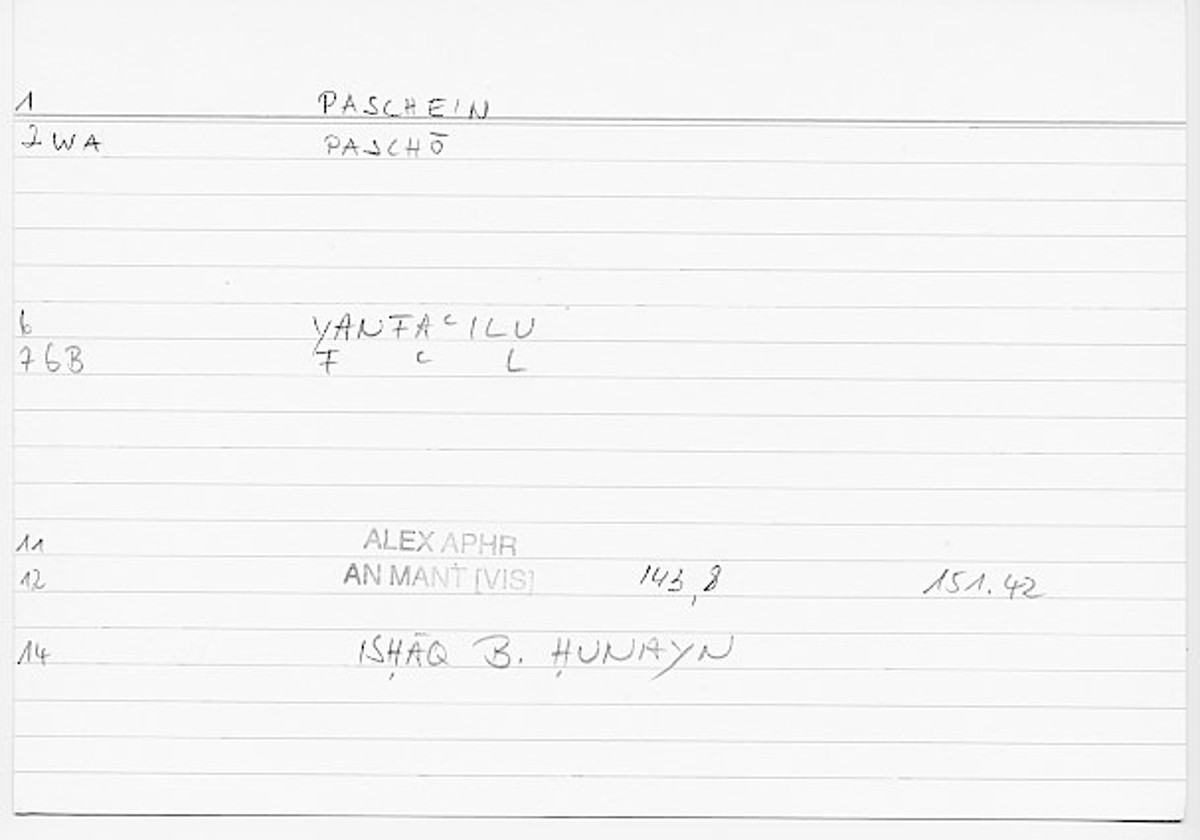 1 PASCHEIN
2WA PASCHŌ
6 YANFAᶜILU
76B F ᶜ L
11 ALEX APHR
12 AN MANT [VIS] 143,8 151.42
14 ISḤĀQ B. ḤUNAYN